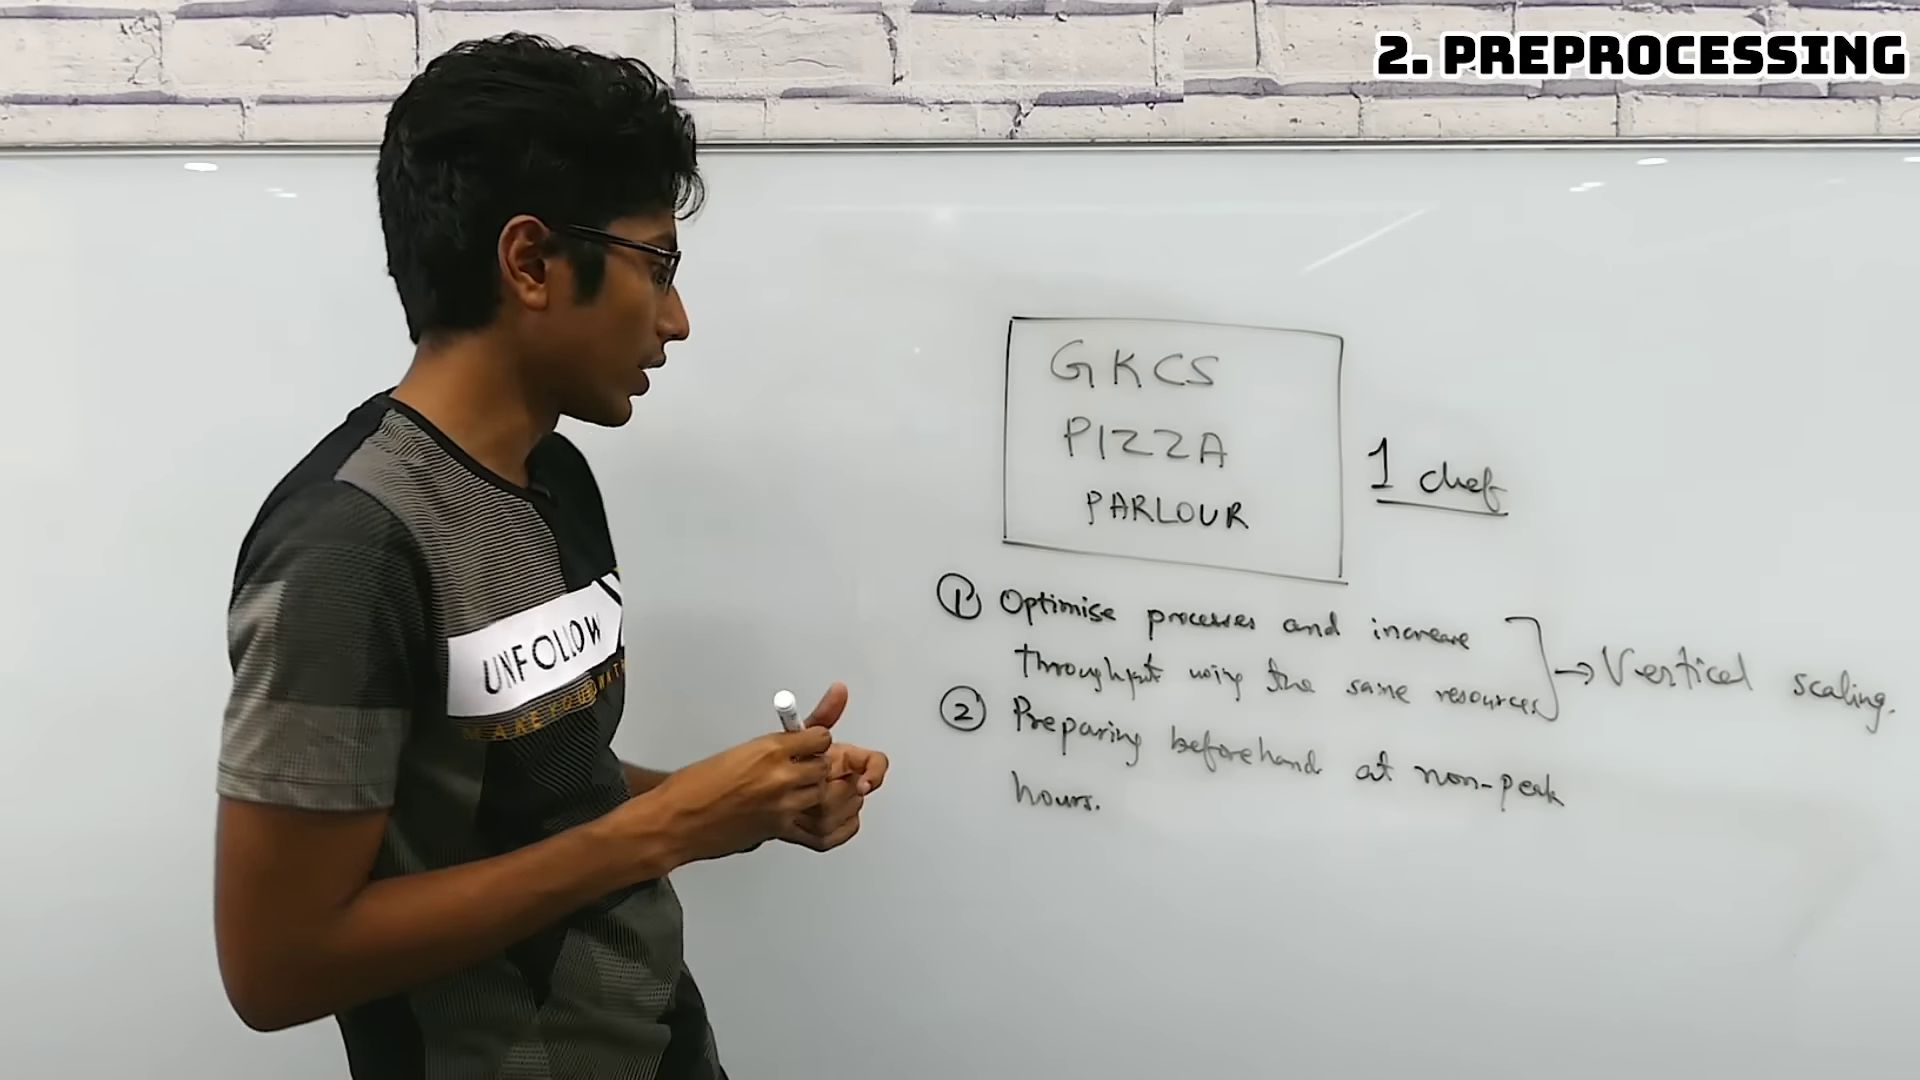 2. PREPROCESSING
GKCS
PIZZA
PARLOUR
1 chef
① Optimise processes and increase
throughput using the same resources → Vertical scaling.
② Preparing beforehand at non-peak
hours.
UNFOLLOW
MAKE YOUR WAT